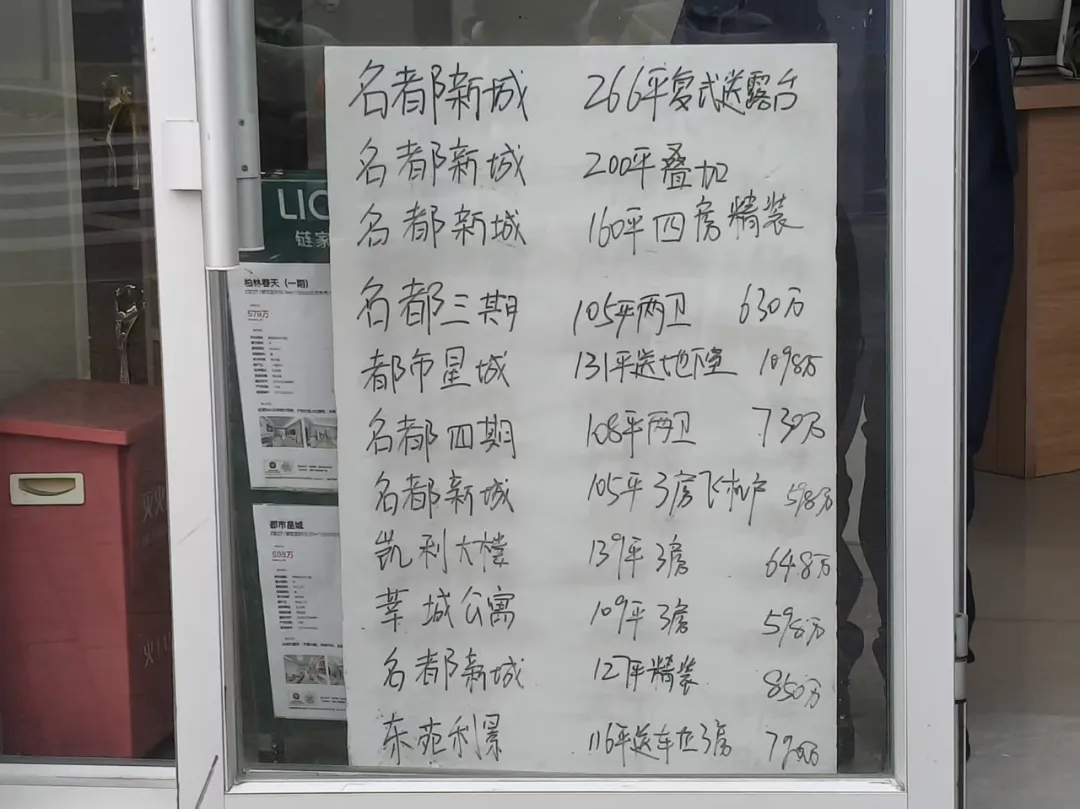 名都新城 266平复式送露台
名都新城 200平叠加
名都新城 160平四房精装
名都三期 105平两卫 630万
都市星城 131平送地下室 1098万
名都四期 108平两卫 730万
名都新城 105平3房飞机户 598万
凯利大楼 139平3房 648万
莘城公寓 109平3房 598万
名都新城 127平精装 850万
东苑利景 116平送车位3房
LIC
链家
柏林春天（一期）
578万
都市星城
593万